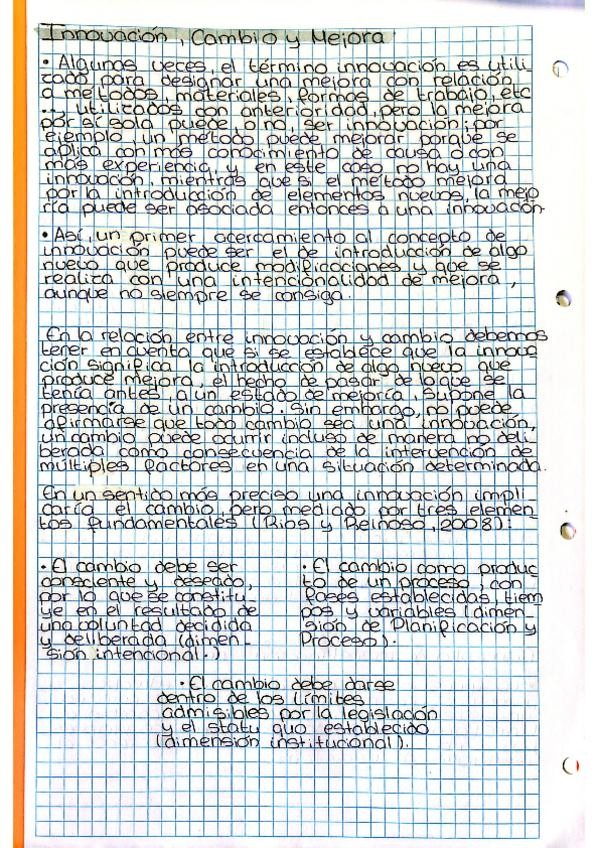 Innovación, Cambio y Mejora
• Algunas veces, el término innovación es utili-
zado para designar una mejora con relación
a métodos, materiales, formas de trabajo, etc
... utilizados con anterioridad, pero la mejora
por sí sola puede, o no, ser innovación; por
ejemplo un método puede mejorar porque se
aplica con más conocimiento de causa o con
más experiencia, y en este caso no hay una
innovación, mientras que si el método mejora
por la introducción de elementos nuevos, la mejo
ría puede ser asociada entonces a una innovación.
• Así, un primer acercamiento al concepto de
innovación puede ser el de introducción de algo
nuevo que produce modificaciones y que se
realiza con una intencionalidad de mejora,
aunque no siempre se consiga.
En la relación entre innovación y cambio debemos
tener en cuenta que si se establece que la innova
ción significa la introducción de algo nuevo que
produce mejora, el hecho de pasar de lo que se
tenía antes, a un estado de mejoría, supone la
presencia de un cambio. Sin embargo, no puede
afirmarse que todo cambio sea una innovación,
un cambio puede ocurrir incluso de manera no deli-
berada como consecuencia de la intervención de
múltiples factores en una situación determinada.
En un sentido más preciso una innovación impli-
caría el cambio, pero mediado por tres elemen-
tos fundamentales (Rios y Reinoso, 2008):
• El cambio debe ser
consciente y deseado,
por lo que se constitu-
ye en el resultado de
una voluntad decidida
y deliberada (dimen-
sión intencional.)
• El cambio como produc-
to de un proceso, con
fases establecidas, tiem
pos y variables (dimen-
sión de Planificación y
Proceso).
• El cambio debe darse
dentro de los límites
admisibles por la legislación
y el statu quo establecido
(dimensión institucional).